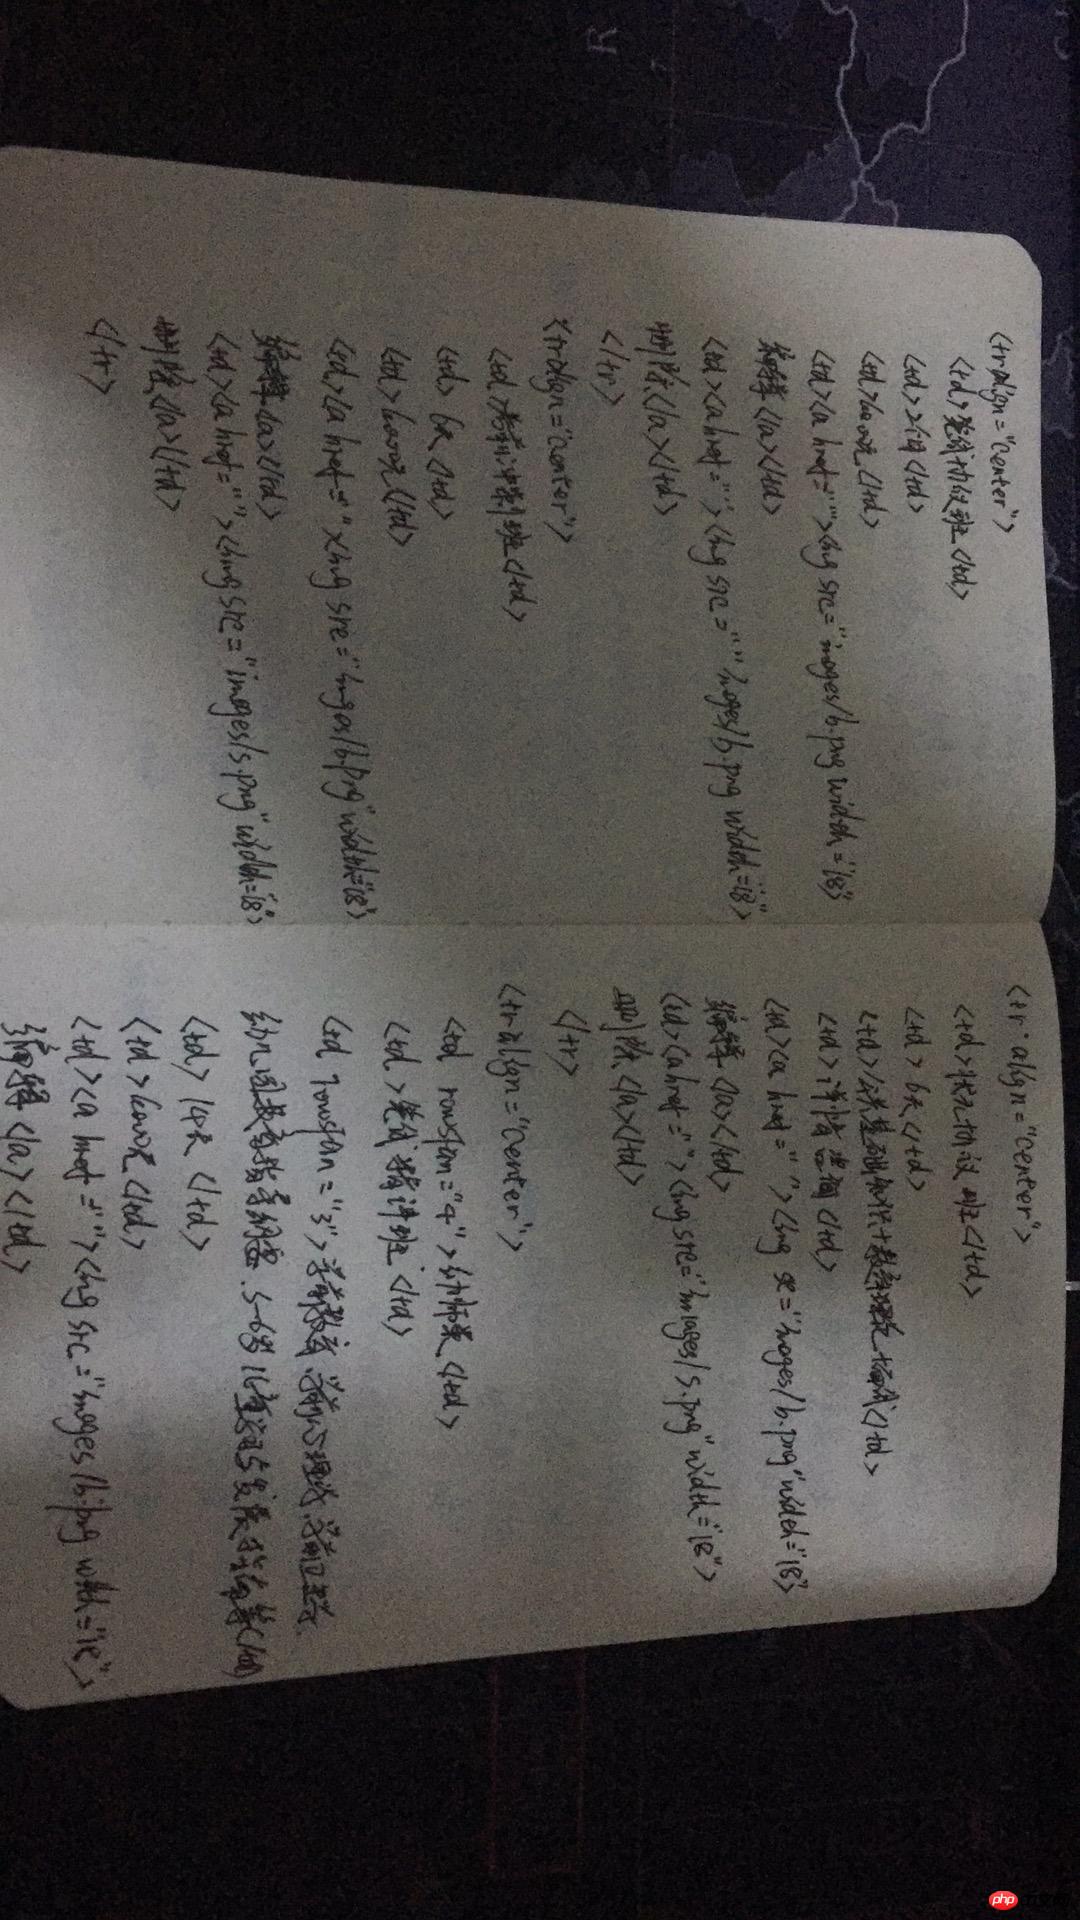 <tr align="center">
<td>笔试协议班</td>
<td>2个月</td>
<td>6400元</td>
<td><a href=""><img src="images/b.png width="18">
编辑</a></td>
<td><a href=""><img src="" images/b.png width="18">
删除</a></td>
</tr>
<tr align="center">
<td>考前冲刺班</td>
<td>6天</td>
<td><a href=""><img src="images/b.png" width="18">
编辑</a></td>
<td><a href=""><img src="images/s.png" width="18">
删除</a></td>
</tr>
<tr align="center">
<td>状元协议班</td>
<td>6天</td>
<td>详情咨询</td>
<td><a href=""><img src="images/b.png" width="18">
编辑</a></td>
<td><a href=""><img src="images/s.png" width="18">
删除</a></td>
</tr>
<tr align="center">
<td rowspan="4">幼师类</td>
<td>笔试精讲班</td>
<td rowspan="3">学前教育、学前心理学、
幼儿园教育指导纲要、3-6岁儿童学习与发展指南等</td>
<td>14天</td>
<td><a href=""><img src="images/b.png width="18">
编辑</a></td>
php